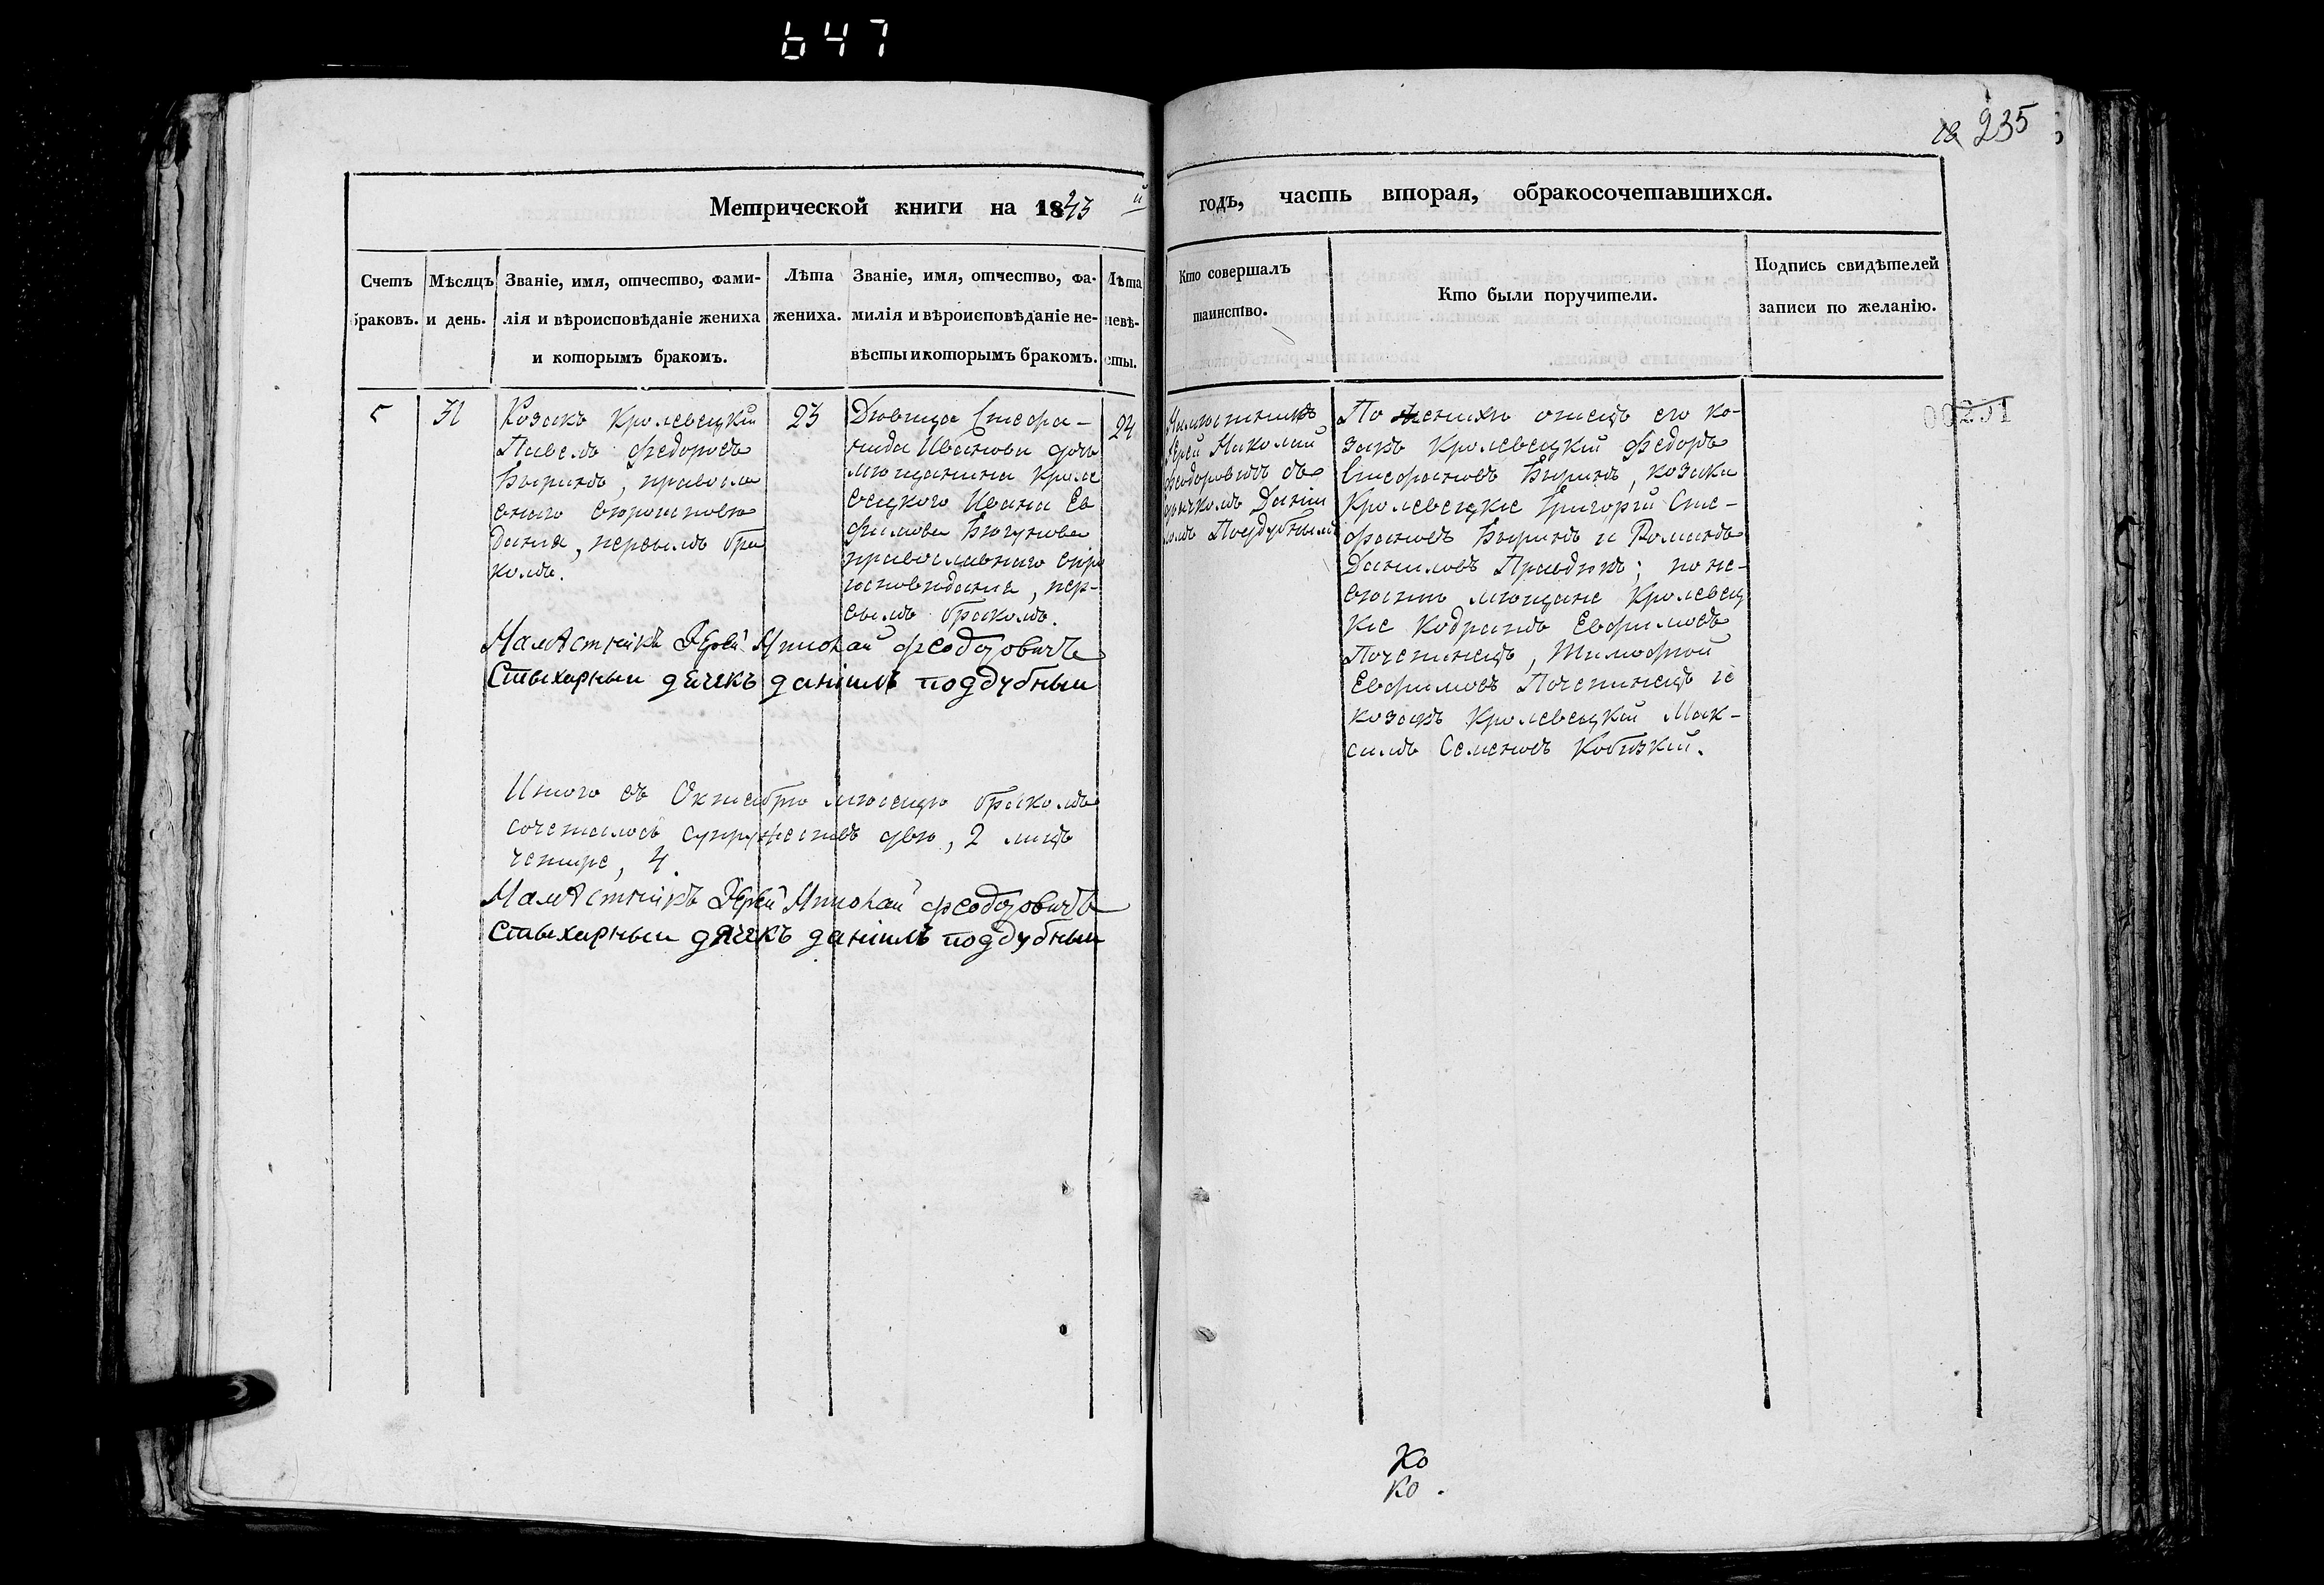 647
235
Метрической книги на 1843 й
годъ, часть вторая, обракосочетавшихся.
Счетъ браковъ.
Мѣсяцъ и день.
Званіе, имя, отчество, фами-
лія и вѣроисповѣданіе жениха
и которымъ бракомъ.
Лѣта
жениха.
Званіе, имя, отчество, фа-
милія и вѣроисповѣданіе не-
вѣсты и которымъ бракомъ.
Лѣта
невѣ-
сты.
Кто совершалъ
таинство.
Кто были поручители.
Подпись свидѣтелей
записи по желанію.
5
31
Козакъ Кролевецкій
Павелъ Федоровъ
Быринъ, православ
внаго вѣроисповѣ
данія, первымъ бра
комъ.
23
Дѣвица Стефа-
нида Иванова дочь
мѣщанина Кроле
вецкого Ивана Ев
фимова
православнаго вѣро
исповѣданія, пер-
вымъ бракомъ.
24
Намѣстникъ
Іерей Николай
Феодоровичъ съ
дячкомъ Даніи
ломъ Поддубнымъ
По женихѣ отецъ его ко-
закъ Кролевецкій Федоръ
Стефановъ Быринъ, козаки
Кролевецкіе Григорій Сте-
фановъ Быринъ и Романъ
Даниловъ Правдюкъ; по не-
вѣстѣ мѣщане Кролевец
кіе Кодратъ Евфимовъ
Почепинецъ, Тимофѣй
Евфимовъ Почепинецъ и
козакъ Кролевецкій Мак-
симъ Семеновъ Кобизкій.
Намѣстникъ Іерей Николай Феодоровичъ
Стыхарныи дячекъ даніилъ поддубныи
Итого въ Октябрѣ мѣсяцѣ бракомъ
сочеталось супружествъ двѣ, 2 лицъ
четыре, 4.
Намѣстникъ Іерей Николай Феодоровичъ
Стыхарныи дячекъ даніилъ поддубныи
00201
Ко
ко.